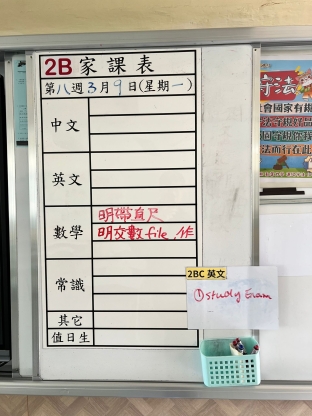 2B 家課表
第八週3月9日(星期一)
中文
英文
數學
明帶直尺
明交數file,作
常識
其它
值日生
2BC 英文
①study Exam
守法
社會國家有規
法而行在此